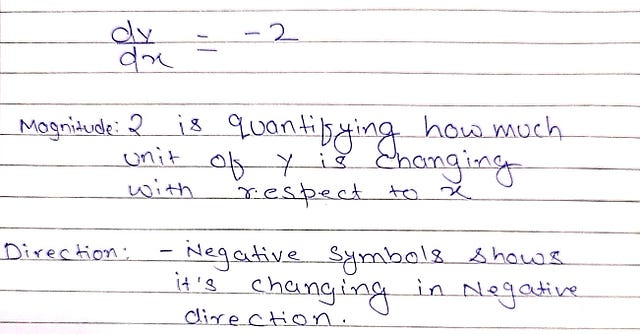 dy/dx = -2
Magnitude: 2 is quantifying how much
unit of y is changing
with respect to x
Direction: - Negative symbols shows
it's changing in Negative
direction.